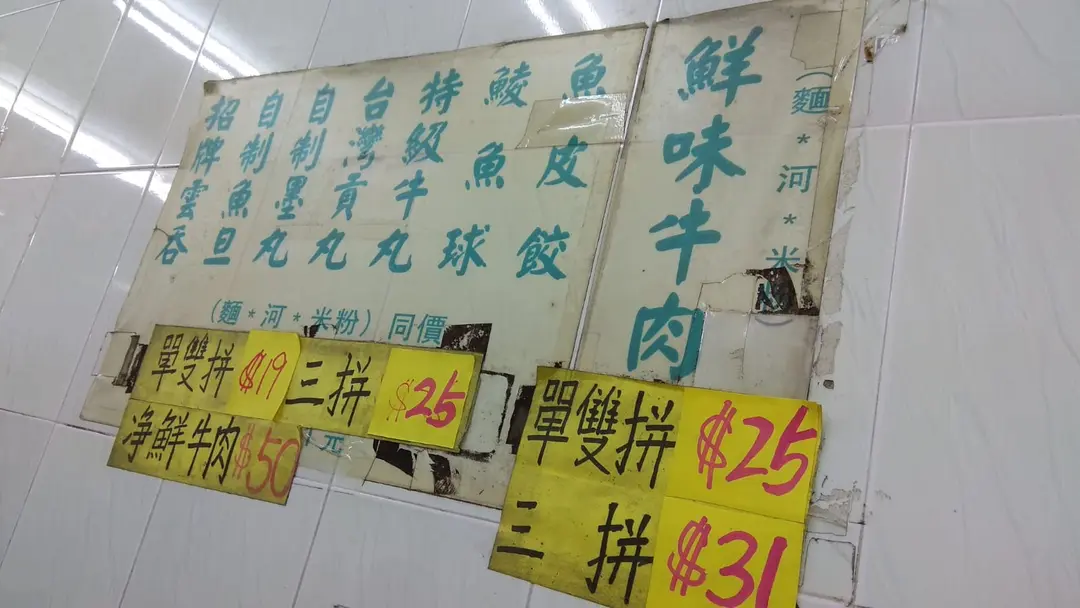 （麵*河*米
鮮味牛肉
魚皮餃
鯪魚球
特級牛丸
台灣貢丸
自制墨丸
自制魚旦
招牌雲吞
（麵*河*米粉）同價
單雙拼 $19
三拼 $25
净鮮牛肉 $50
元
單雙拼 $25
三拼 $31